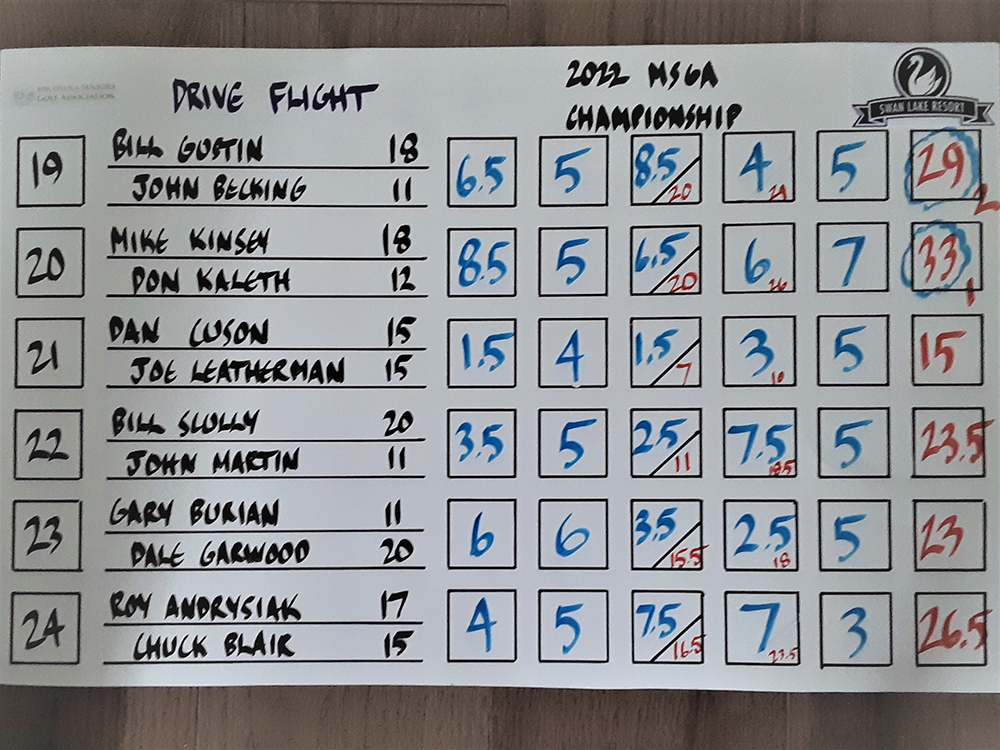 MICHIANA SENIORS
GOLF ASSOCIATION
DRIVE FLIGHT
2022 MSGA
CHAMPIONSHIP
SWAN LAKE RESORT
19 BILL GUSTIN 18 6.5 5 8.5 20 4 24 5 29 2
JOHN BECKING 11
20 MIKE KINSEY 18 8.5 5 6.5 20 6 26 7 33 1
DON KALETH 12
21 DAN CUSON 15 1.5 4 1.5 7 3 10 5 15
JOE LEATHERMAN 15
22 BILL SCULLY 20 3.5 5 2.5 11 7.5 18.5 5 23.5
JOHN MARTIN 11
23 GARY BURIAN 11 6 6 3.5 15.5 2.5 18 5 23
DALE GARWOOD 20
24 ROY ANDRYSIAK 17 4 5 7.5 16.5 7 23.5 3 26.5
CHUCK BLAIR 15